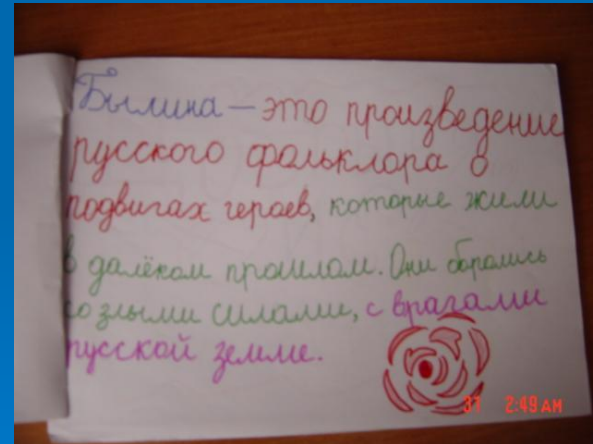 Былина – это произведение
русского фольклора о
подвигах героев, которые жили
в далёком прошлом. Они боролись
со злыми силами, с врагами
русской земли.
37 2:49 AM